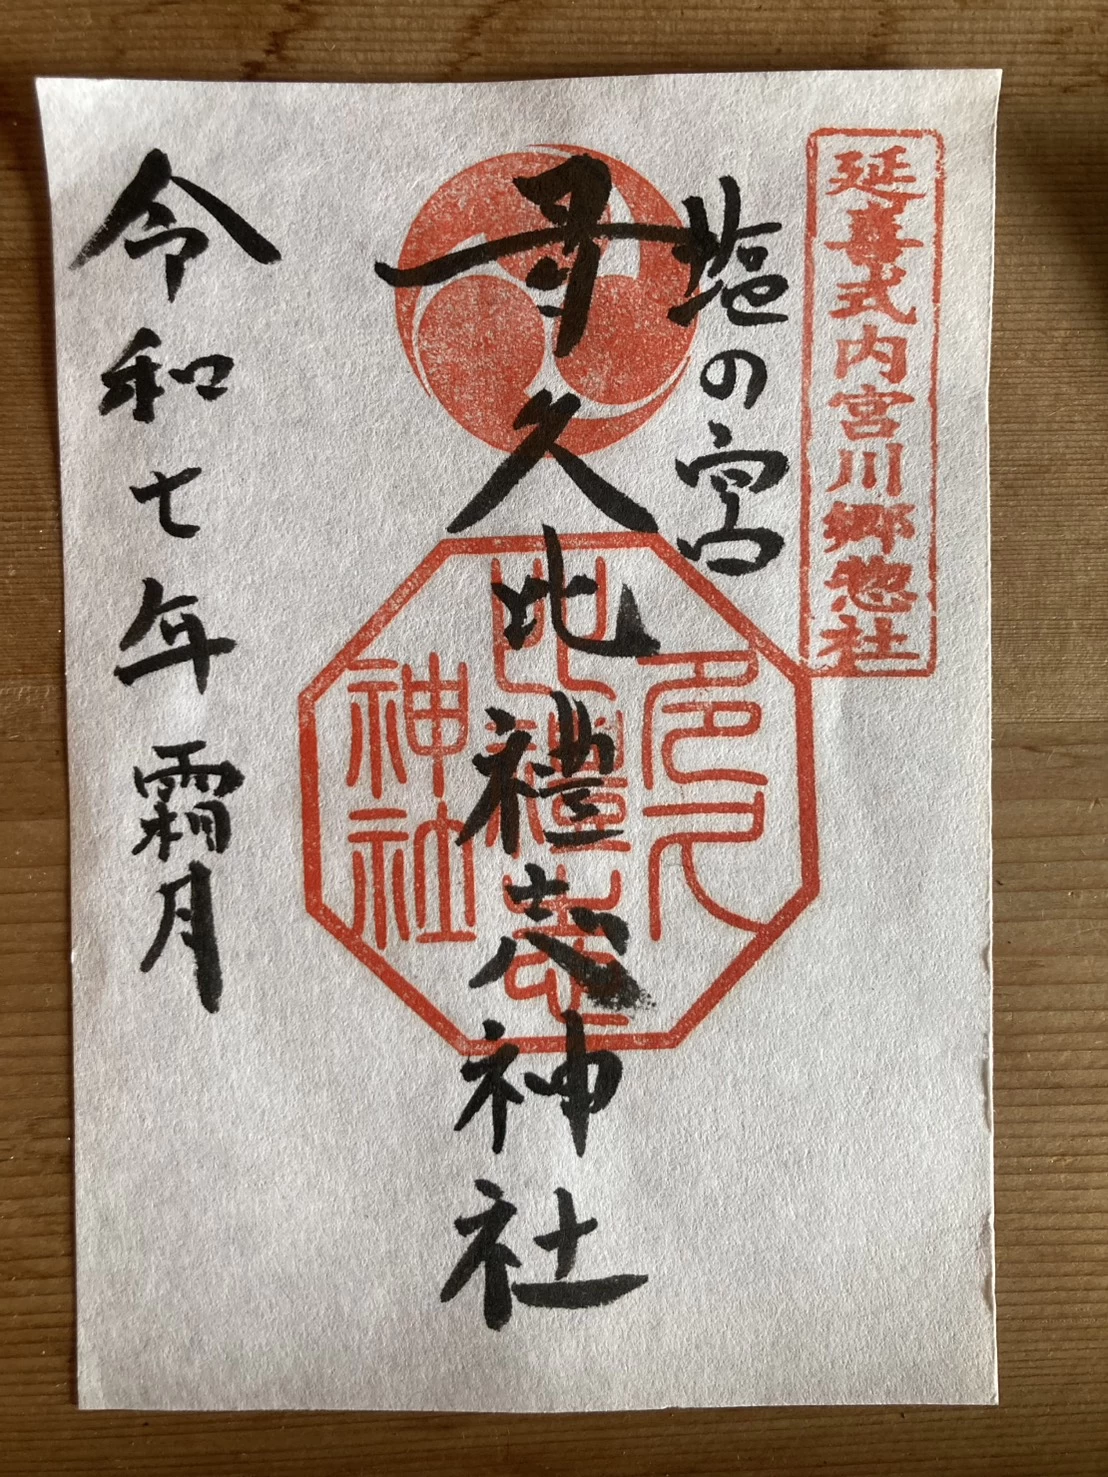 延喜式内宮川郷惣社
塩の宮
多久比禮志神社
多久
比禮志
神社
令和七年霜月